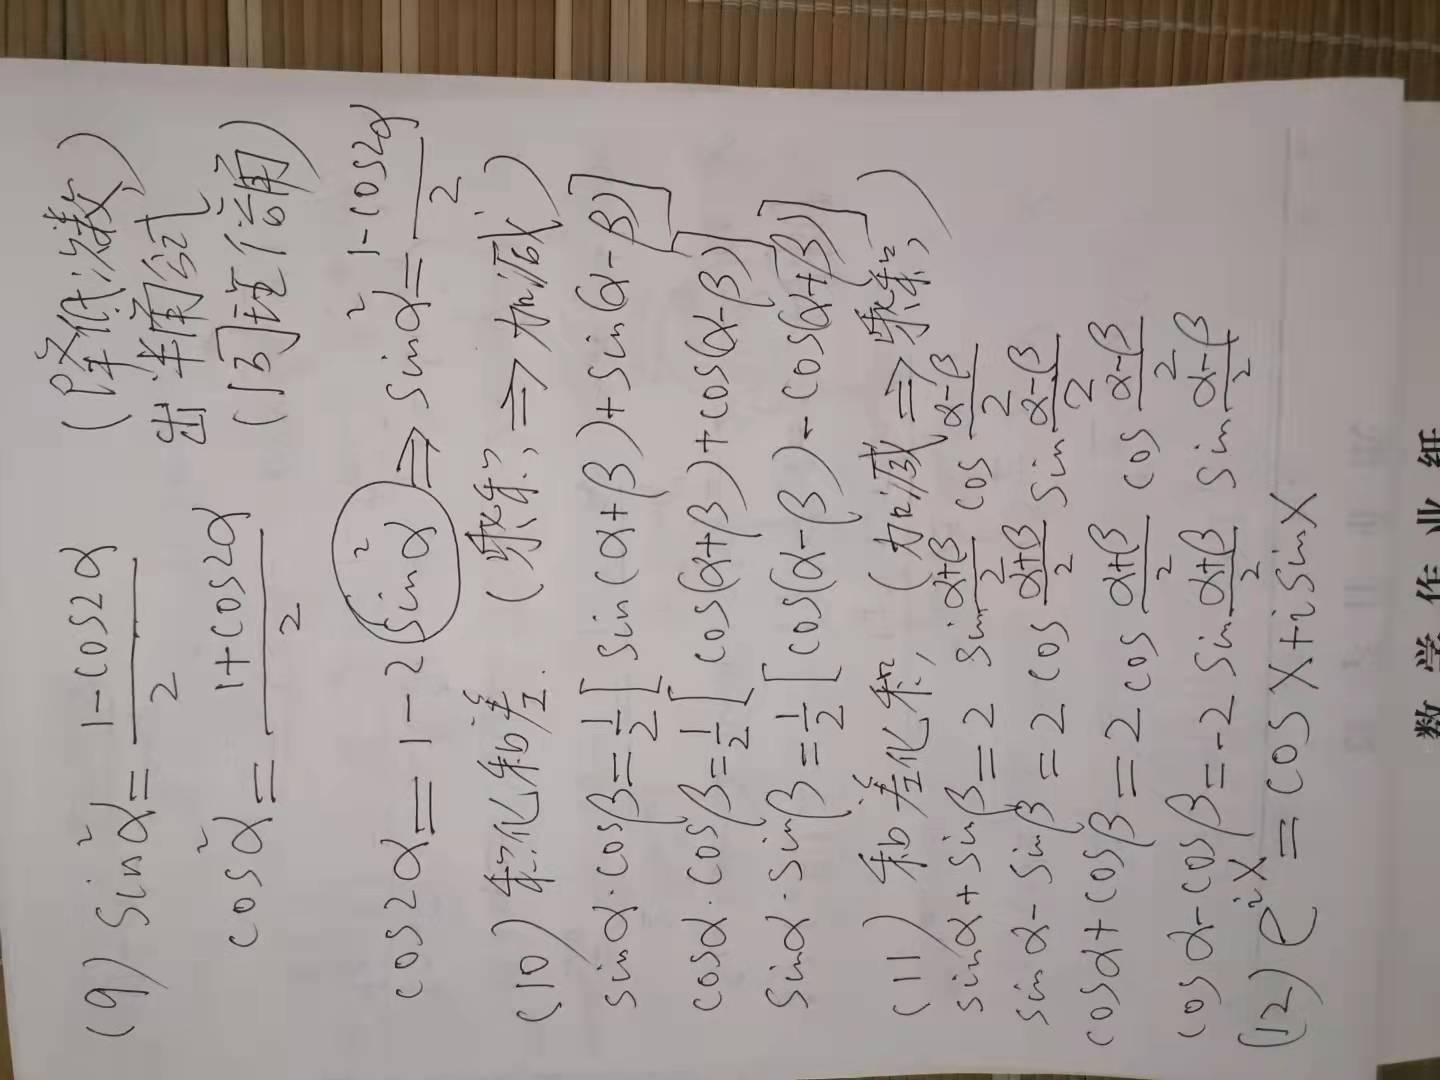 (9) sin²α = (1-cos2α)/2 (降低次数)
出半角公式
cos²α = (1+cos2α)/2 (同理倍角)
cos2α = 1-2sin²α ⇒ sin²α = (1-cos2α)/2
(10) 积化和差. (乘积 ⇒ 加减)
sinα·cosβ = 1/2[sin(α+β)+sin(α-β)]
cosα·cosβ = 1/2[cos(α+β)+cos(α-β)]
sinα·sinβ = 1/2[cos(α-β)-cos(α+β)]
(11) 和差化积, (加减 ⇒ 乘积)
sinα+sinβ = 2 sin (α+β)/2 cos (α-β)/2
sinα-sinβ = 2 cos (α+β)/2 sin (α-β)/2
cosα+cosβ = 2 cos (α+β)/2 cos (α-β)/2
cosα-cosβ = -2 sin (α+β)/2 sin (α-β)/2
(12) e^{ix} = cosx+isinx
数学作业纸